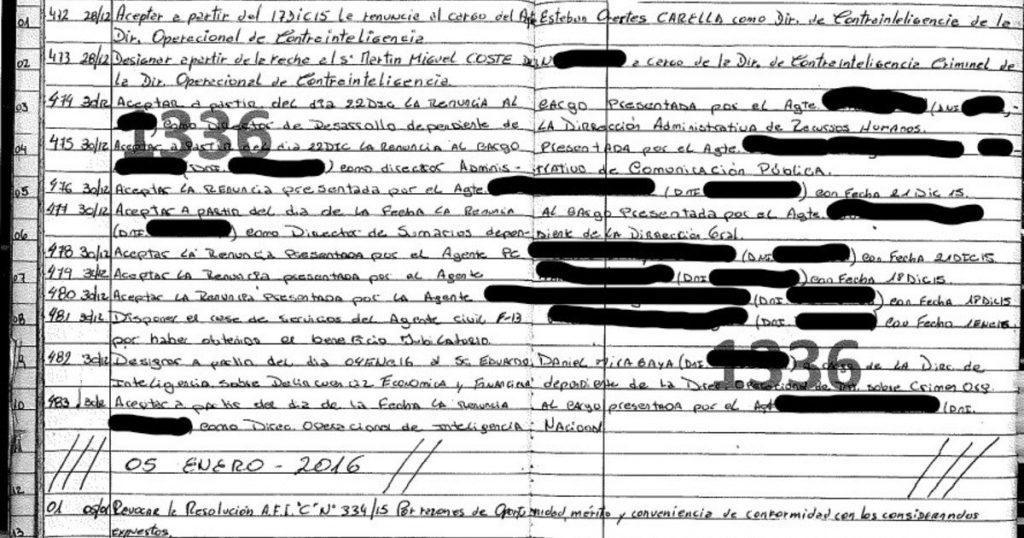 01 472 28/12 Aceptar a partir del 17DIC15 la renuncia al cargo del Agte Esteban Orestes CARELLA como Dir. de Contrainteligencia de la
Dir. Operacional de Contrainteligencia
02 473 28/12 Designar a partir de la fecha al Sr Martin Miguel COSTE a cargo de la Dir. de Contrainteligencia Criminal de
la Dir. Operacional de Contrainteligencia
03 474 30/12 Aceptar a partir del dia 22DIC la Renuncia al cargo presentada por el Agte (DNI
) como Director de Desarrollo dependiente de la Dirección Administrativa de Recursos Humanos.
1336
04 475 30/12 Aceptar a partir del dia 22DIC la Renuncia al cargo presentada por el Agte
(DNI ) como director Administrativo de Comunicación Pública.
05 476 30/12 Aceptar la Renuncia presentada por el Agte (DNI ) con Fecha 21DIC15.
477 30/12 Aceptar a partir del dia de la Fecha la Renuncia al cargo presentada por el Agte
06 (DNI ) como Director de Sumarios dependiente de la Dirección Gral.
478 30/12 Aceptar la Renuncia presentada por el Agente PC (DNI ) con Fecha 21DIC15.
07 479 30/12 Aceptar la Renuncia presentada por el Agente (DNI ) con Fecha 18DIC15
480 30/12 Aceptar la Renuncia presentada por la Agente (DNI ) con Fecha 18DIC15
08 481 30/12 Disponer el cese de servicios del Agente civil F-13 (DNI ) con Fecha 1ENE16.
por haber obtenido el beneficio Jubilatorio.
482 30/12 Designar a partir del dia 04ENE16 al Sr. Eduardo Daniel MIRABAYA (DNI ) a cargo de la Direc. de
1336
Inteligencia sobre Delincuencia Economica y Financiera dependiente de la Direc. Operacional de Int. sobre Crimen Org.
10 483 30/12 Aceptar a partir del dia de la Fecha la renuncia al cargo presentada por el Agt (DNI.
) como Direc. Operacional de Inteligencia Nacional
/// 05 ENERO - 2016 // ///
12
01 05/01 Revocar la Resolución A.F.I. "C" Nº 334/15 Por razones de Oportunidad, mérito y conveniencia de conformidad con los considerandos
13 expuestos.